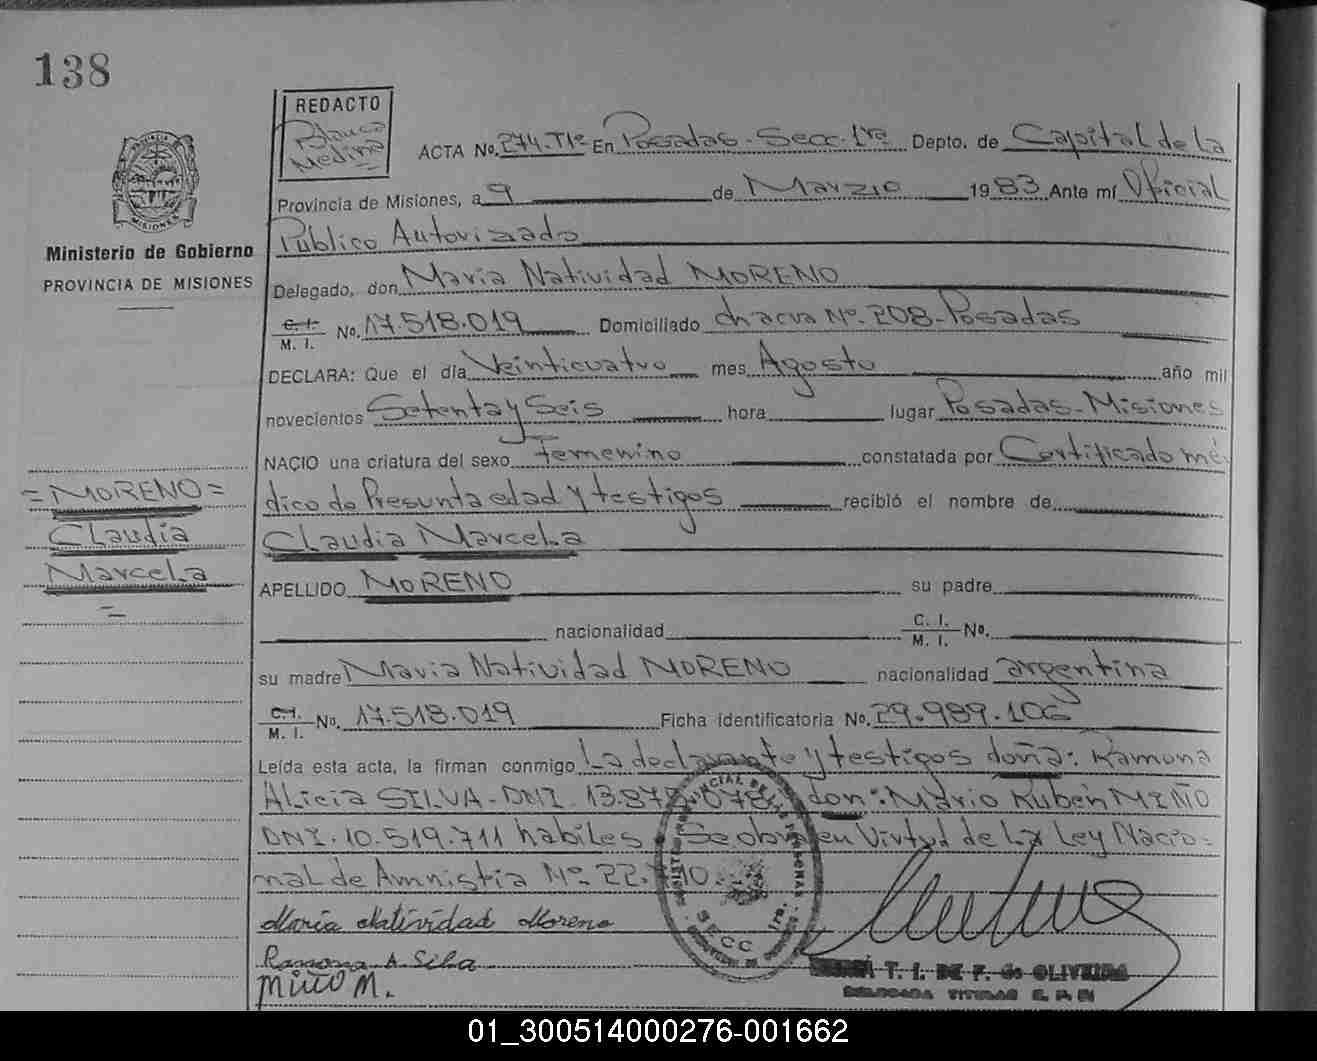 138
REDACTO
Blanca
Medina
ACTA No. 274.T1º En Posadas - Secc. 1ra Depto. de Capital de La
Provincia de Misiones, a 9 de Marzo 1983 Ante mí Oficial
Público Autorizado
Ministerio de Gobierno
PROVINCIA DE MISIONES
Delegado, don María Natividad MORENO
C. I.
M. I. No. 17.518.019 Domiciliado chacra Nº. 208 - Posadas
DECLARA: Que el día Veinticuatro mes Agosto año mil
novecientos Setenta y Seis hora lugar Posadas - Misiones
NACIO una criatura del sexo Femenino constatada por Certificado mé
dico de Presunta edad y testigos recibió el nombre de
Claudia Marcela
= MORENO =
Claudia
Marcela
=
APELLIDO MORENO su padre
nacionalidad C. I.
M. I. No.
su madre María Natividad MORENO nacionalidad argentina
C. I.
M. I. No. 17.518.019 Ficha identificatoria No. 29.989.106
Leída esta acta, la firman conmigo La declarante y testigos doña: Ramona
Alicia SILVA - DNI. don: Mario Rubén MIÑO
DNI. 10.519.711 habiles Se obra en Virtud de La Ley Nacio=
nal de Amnistia Nº. 22.
María Natividad Moreno
Ramona A. Silva
MIÑO M.
SECC 1ra.
T. I. DE F. de OLIVEIRA
DELEGADA TITULAR
01_300514000276-001662